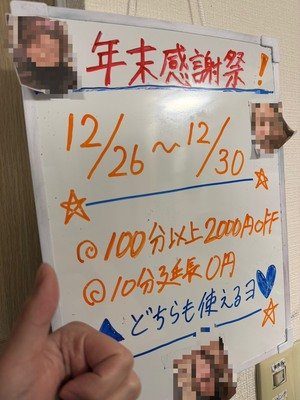 年末感謝祭!
12/26〜12/30
◎100分以上2000円OFF
◎10分延長0円
どちらも使えるヨ